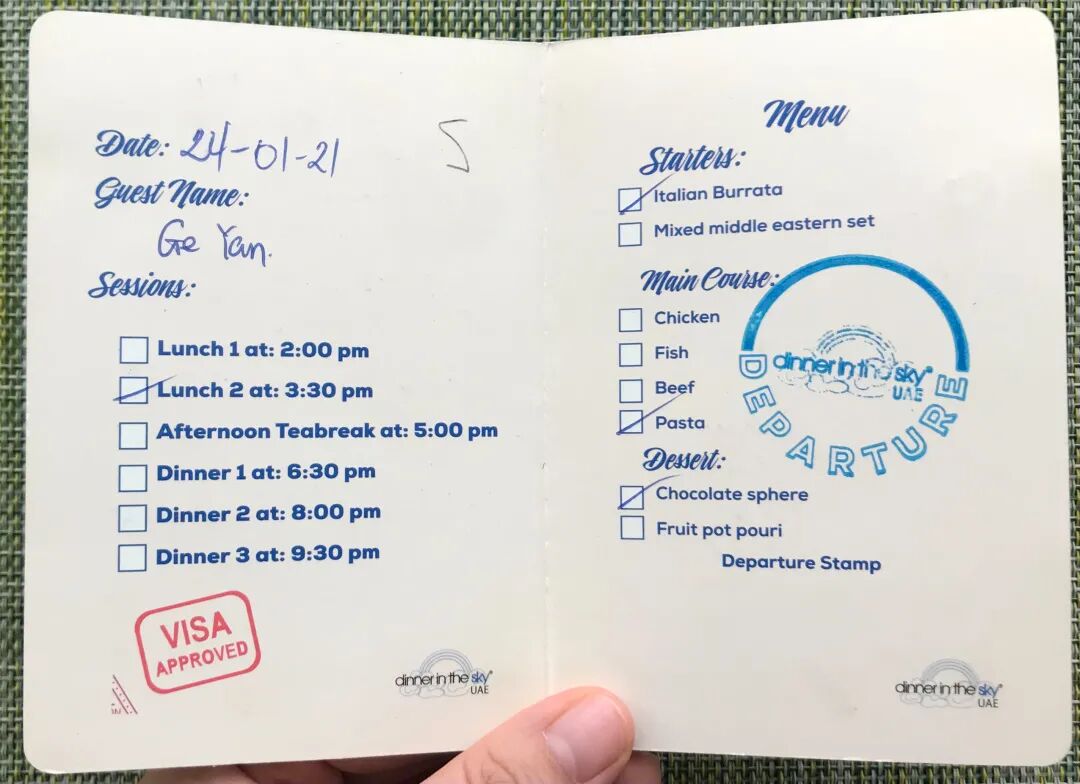 Date: 24-01-21
5
Guest Name:
Ge Yan.
Sessions:
Lunch 1 at: 2:00 pm
Lunch 2 at: 3:30 pm
Afternoon Teabreak at: 5:00 pm
Dinner 1 at: 6:30 pm
Dinner 2 at: 8:00 pm
Dinner 3 at: 9:30 pm
VISA
APPROVED
dinner in the sky®
UAE
Menu
Starters:
Italian Burrata
Mixed middle eastern set
Main Course:
Chicken
Fish
Beef
Pasta
dinner in the sky®
UAE
DEPARTURE
Dessert:
Chocolate sphere
Fruit pot pouri
Departure Stamp
dinner in the sky®
UAE